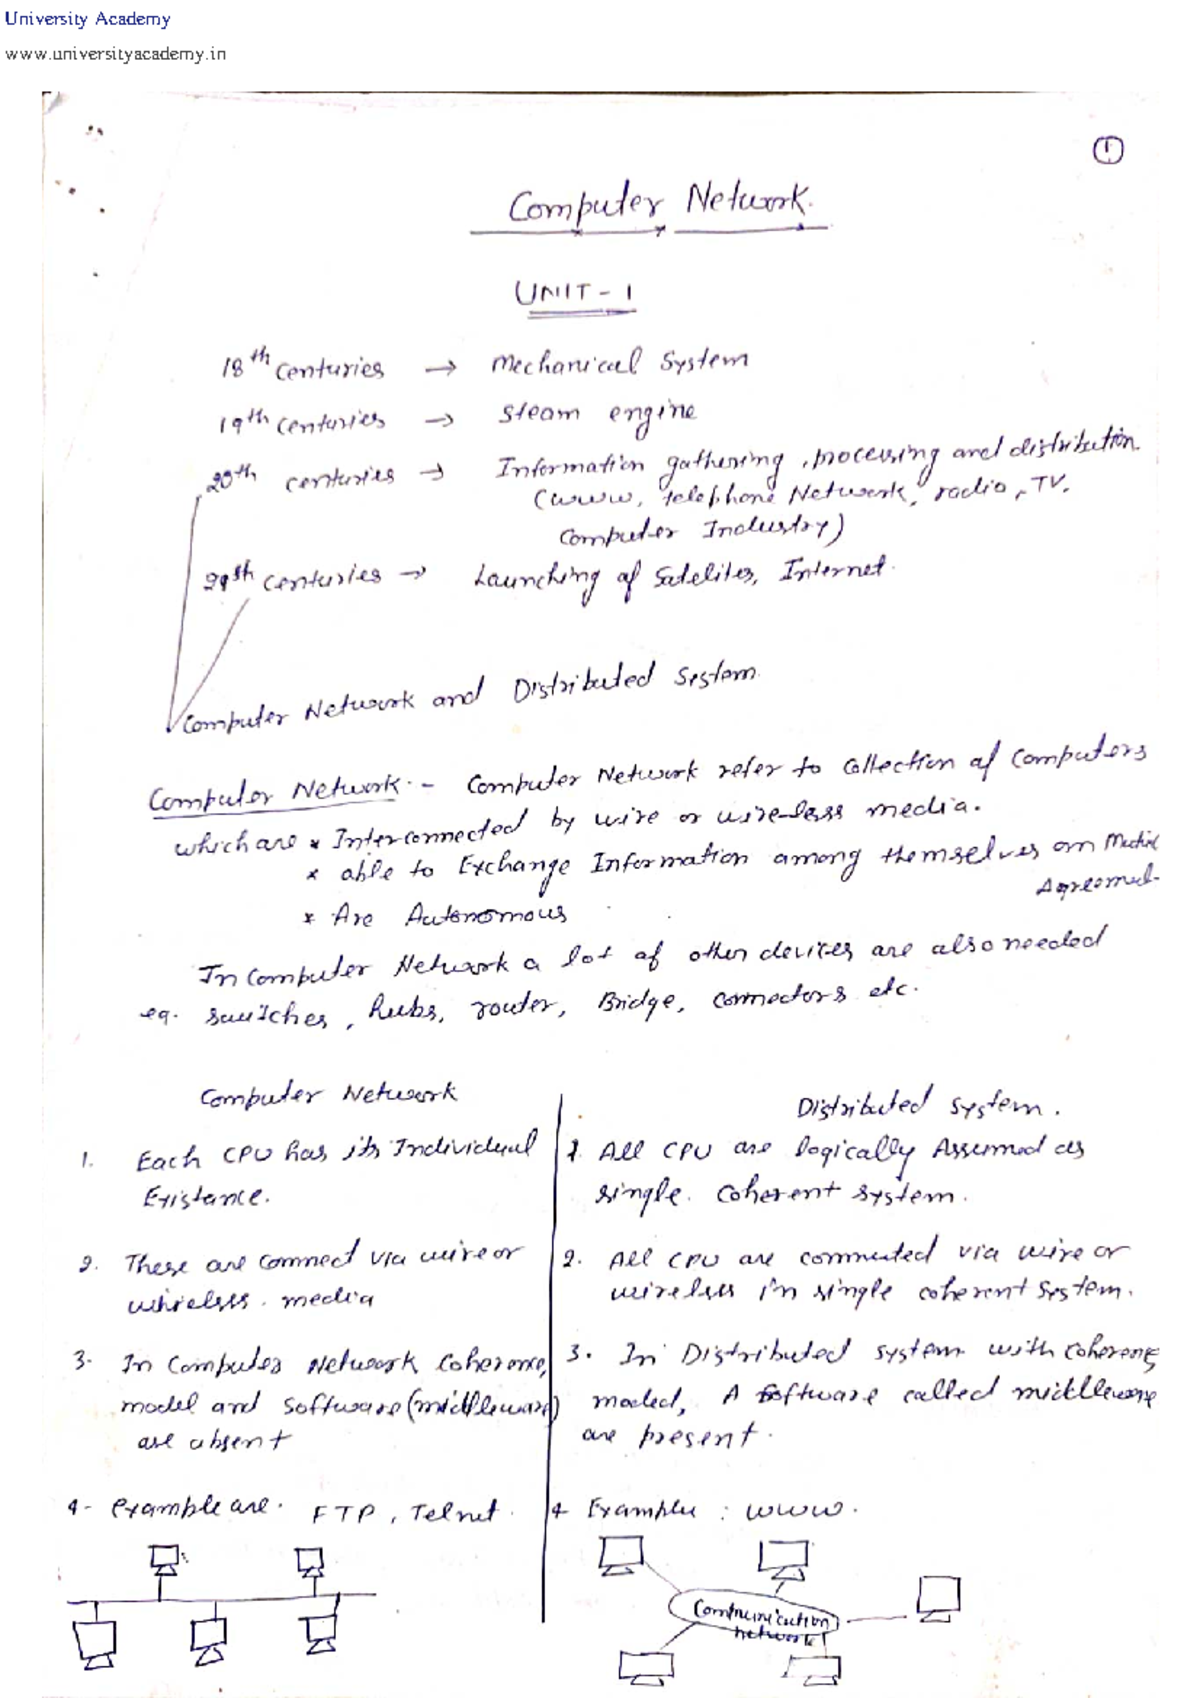 University Academy
www.universityacademy.in
1
Computer Network.
UNIT - 1
18th centuries → Mechanical System
19th centuries → Steam engine
20th centuries → Information gathering, processing and distribution.
(www, telephone Network, radio, TV.
Computer Industry)
centuries → Launching of Satelites, Internet.
Computer Network and Distributed System.
Computer Network. - Computer Network refer to collection of computers
which are * Interconnected by wire or wire-less media.
* able to Exchange Information among themselves on
Agreement.
* Are Autonomous
In computer Network a lot of other devices are also needed
eg. switches, hubs, router, Bridge, connectors etc.
Computer Network
1. Each CPU has its Individual
Existance.
2. These are connect via wire or
whireless. media
3. In Computer Network Coherence,
model and Software (middleware)
are absent
4- example are. FTP, Telnet.
Distributed system.
1. All CPU are logically Assumed as
single. coherent system.
2. All CPU are connected via wire or
wireless in single coherent system.
3. In Distributed system with coherence,
model, A Software called middleware
are present.
4 Examples : www.
Communication
network